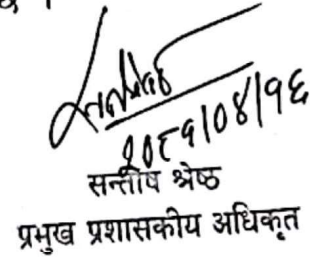 २०८१/०४/१६
सन्तोष श्रेष्ठ
प्रमुख प्रशासकीय अधिकृत